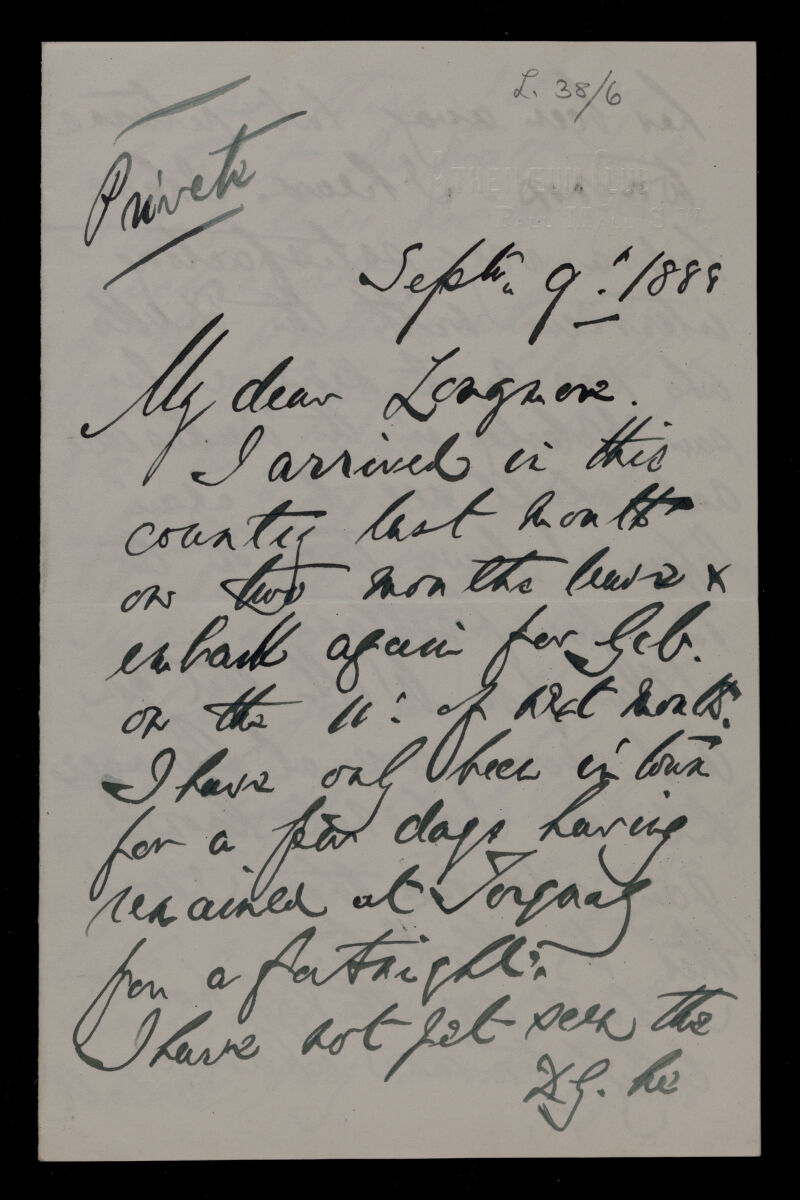 L. 38/6
Private
ATHENÆUM CLUB
PALL MALL S.W.
Septr. 9: 1888
My dear Longmore.
I arrived in this
country last month
on two months leave &
embark again for Gib.
on the 11: of next month.
I have only been in town
for a few days having
remained at Torquay
for a fortnight.
I have not yet seen the
D.G. he